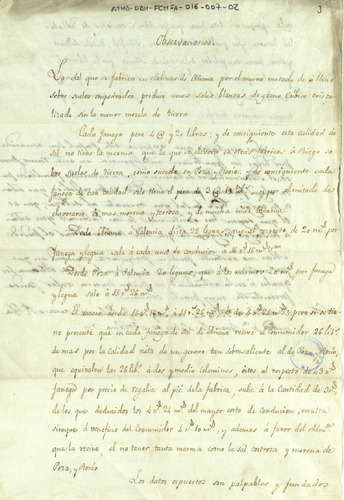 ATHO-DAH-FCMSA-016-007-02
3
Observaciones.
La sal que se fabrica en Salinas de Añana por el nuevo metodo de a lleno
sobre suelos empedrados produce unas sales blancas de grano Cubico cris
talizado sin la menor mezcla de tierra.
Cada fanega pesa 4 @ y 20 libras; y de consiguiente esta calidad de
sal no tiene la merma, que la que se elabora en otras fabricas à Riego so
bre suelos de tierra, como sucede en Poza y Rosio: y de consiguiente cada
fanega de esta calidad solo tiene el peso de 3 @ por el metodo de
elavorarse es mas morena y terrosa, y de mucha mas merma.
Desde Añana à Valencia dista leguas, que al respecto de 20 mrs por
fanega y legua sale à cada uno de conducion
Desde Poza à Valencia 20 leguas, que à los mismos 20 mrs por fanega
y legua sale à 11 rs 26 ms
El exceso desde à 11 rs 26 ms es de pero si se tie
ne presente que en cada fanega de sal de Añana recive el Consumidor 26 lbs
de mas por la Calidad neta de un genero tan sobresaliente al de Poza y Rosio,
que equivalen las 26 lbs à dos y medio celemines, estos al respecto de
fanega por precio de regalia al pie de la fabrica, sube à la Cantidad de
de los que deducidos los 4 rs 24 ms del mayor costo de Conducion, resulta
siempre à veneficio del Consumidor y ademas à favor del
que la recive el no tener tanta merma como la sal costrosa y morena de
Poza, y Rosio.
Los datos expuestos son palpables y fundados